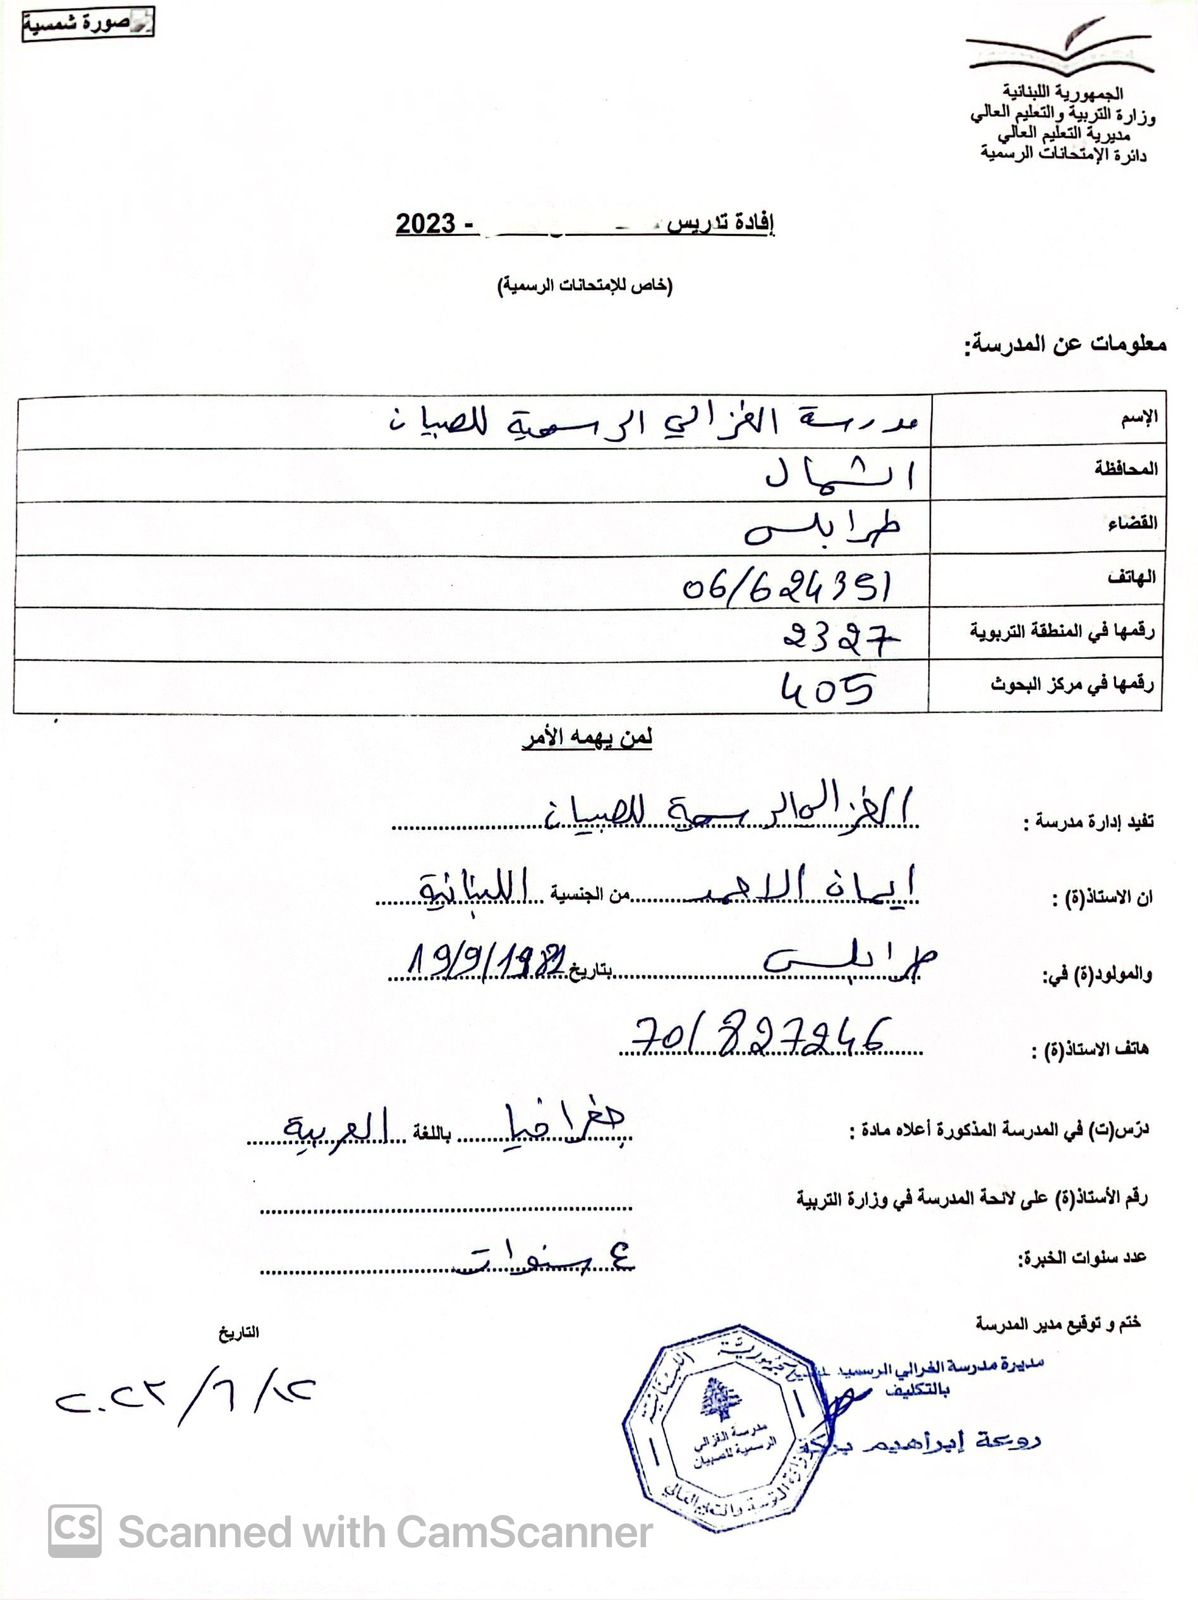 صورة شمسية
الجمهورية اللبنانية
وزارة التربية والتعليم العالي
مديرية التعليم العالي
دائرة الإمتحانات الرسمية
إفادة تدريس - 2023
(خاص للإمتحانات الرسمية)
معلومات عن المدرسة:
الإسم مدرسة الغزالي الرسمية للصبيان
المحافظة الشمال
القضاء طرابلس
الهاتف 06/624351
رقمها في المنطقة التربوية 2327
رقمها في مركز البحوث 405
لمن يهمه الأمر
تفيد إدارة مدرسة : الغزالي الرسمية للصبيان
ان الاستاذ(ة) : ايمان الاحمد من الجنسية اللبنانية
والمولود(ة) في: طرابلس بتاريخ
هاتف الاستاذ(ة) : 70/827246
درّس(ت) في المدرسة المذكورة أعلاه مادة : جغرافيا باللغة العربية
رقم الأستاذ(ة) على لائحة المدرسة في وزارة التربية
عدد سنوات الخبرة: ٤ سنوات
ختم و توقيع مدير المدرسة
التاريخ
مديرة مدرسة الغزالي الرسمية
بالتكليف
روعة إبراهيم بركة
٢٠٢٣/٦/١٢
الجمهورية اللبنانية
مدرسة الغزالي
الرسمية للصبيان
وزارة التربية والتعليم العالي
CS Scanned with CamScanner